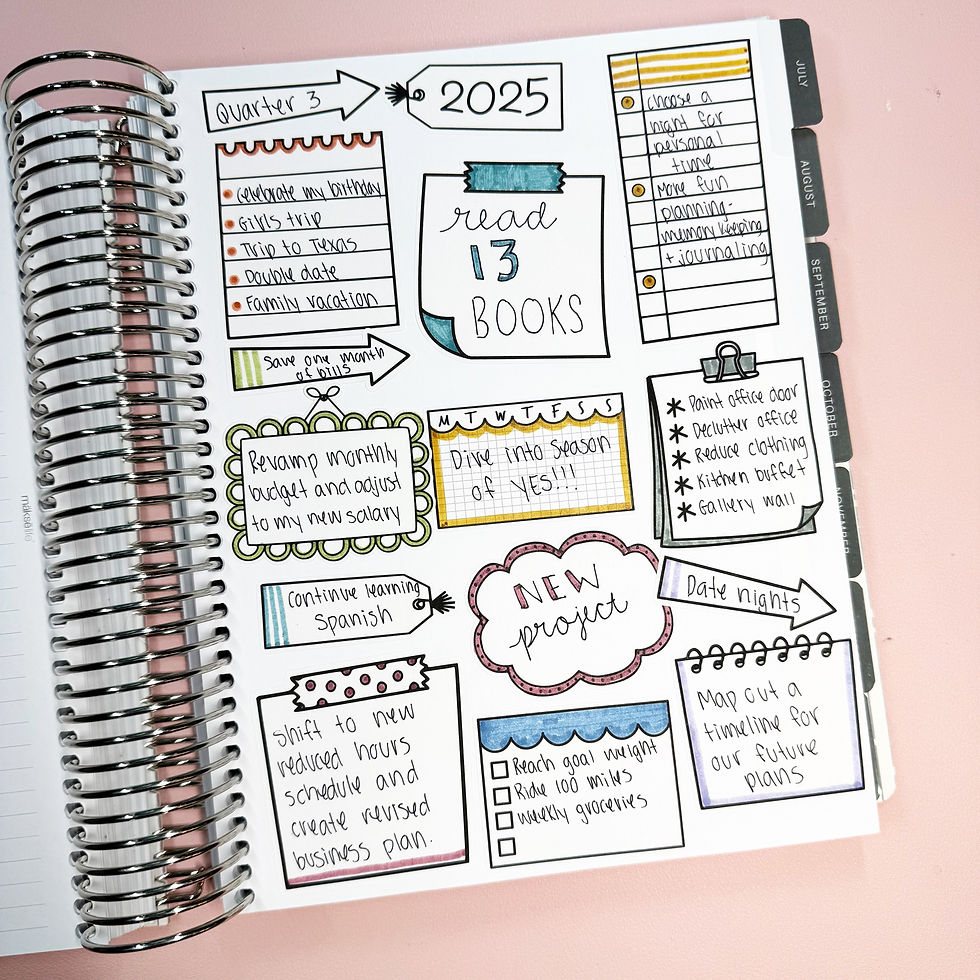 Quarter 3
2025
celebrate my birthday
Girls trip
Trip to Texas
Double date
Family vacation
read
13
BOOKS
choose a
night for
personal
time
More fun
planning-
memory keeping
+ journaling
Save one month
of bills
Revamp monthly
budget and adjust
to my new salary
M T W T F S S
Dive into season
of YES!!!
Paint office door
Declutter office
Reduce clothing
Kitchen buffet
Gallery wall
Continue learning
Spanish
NEW
project
Date nights
Shift to new
reduced hours
schedule and
create revised
business plan.
Reach goal weight
Ride 100 miles
weekly groceries
Map out a
timeline for
our future
plans
JULY
AUGUST
SEPTEMBER
OCTOBER
NOVEMBER